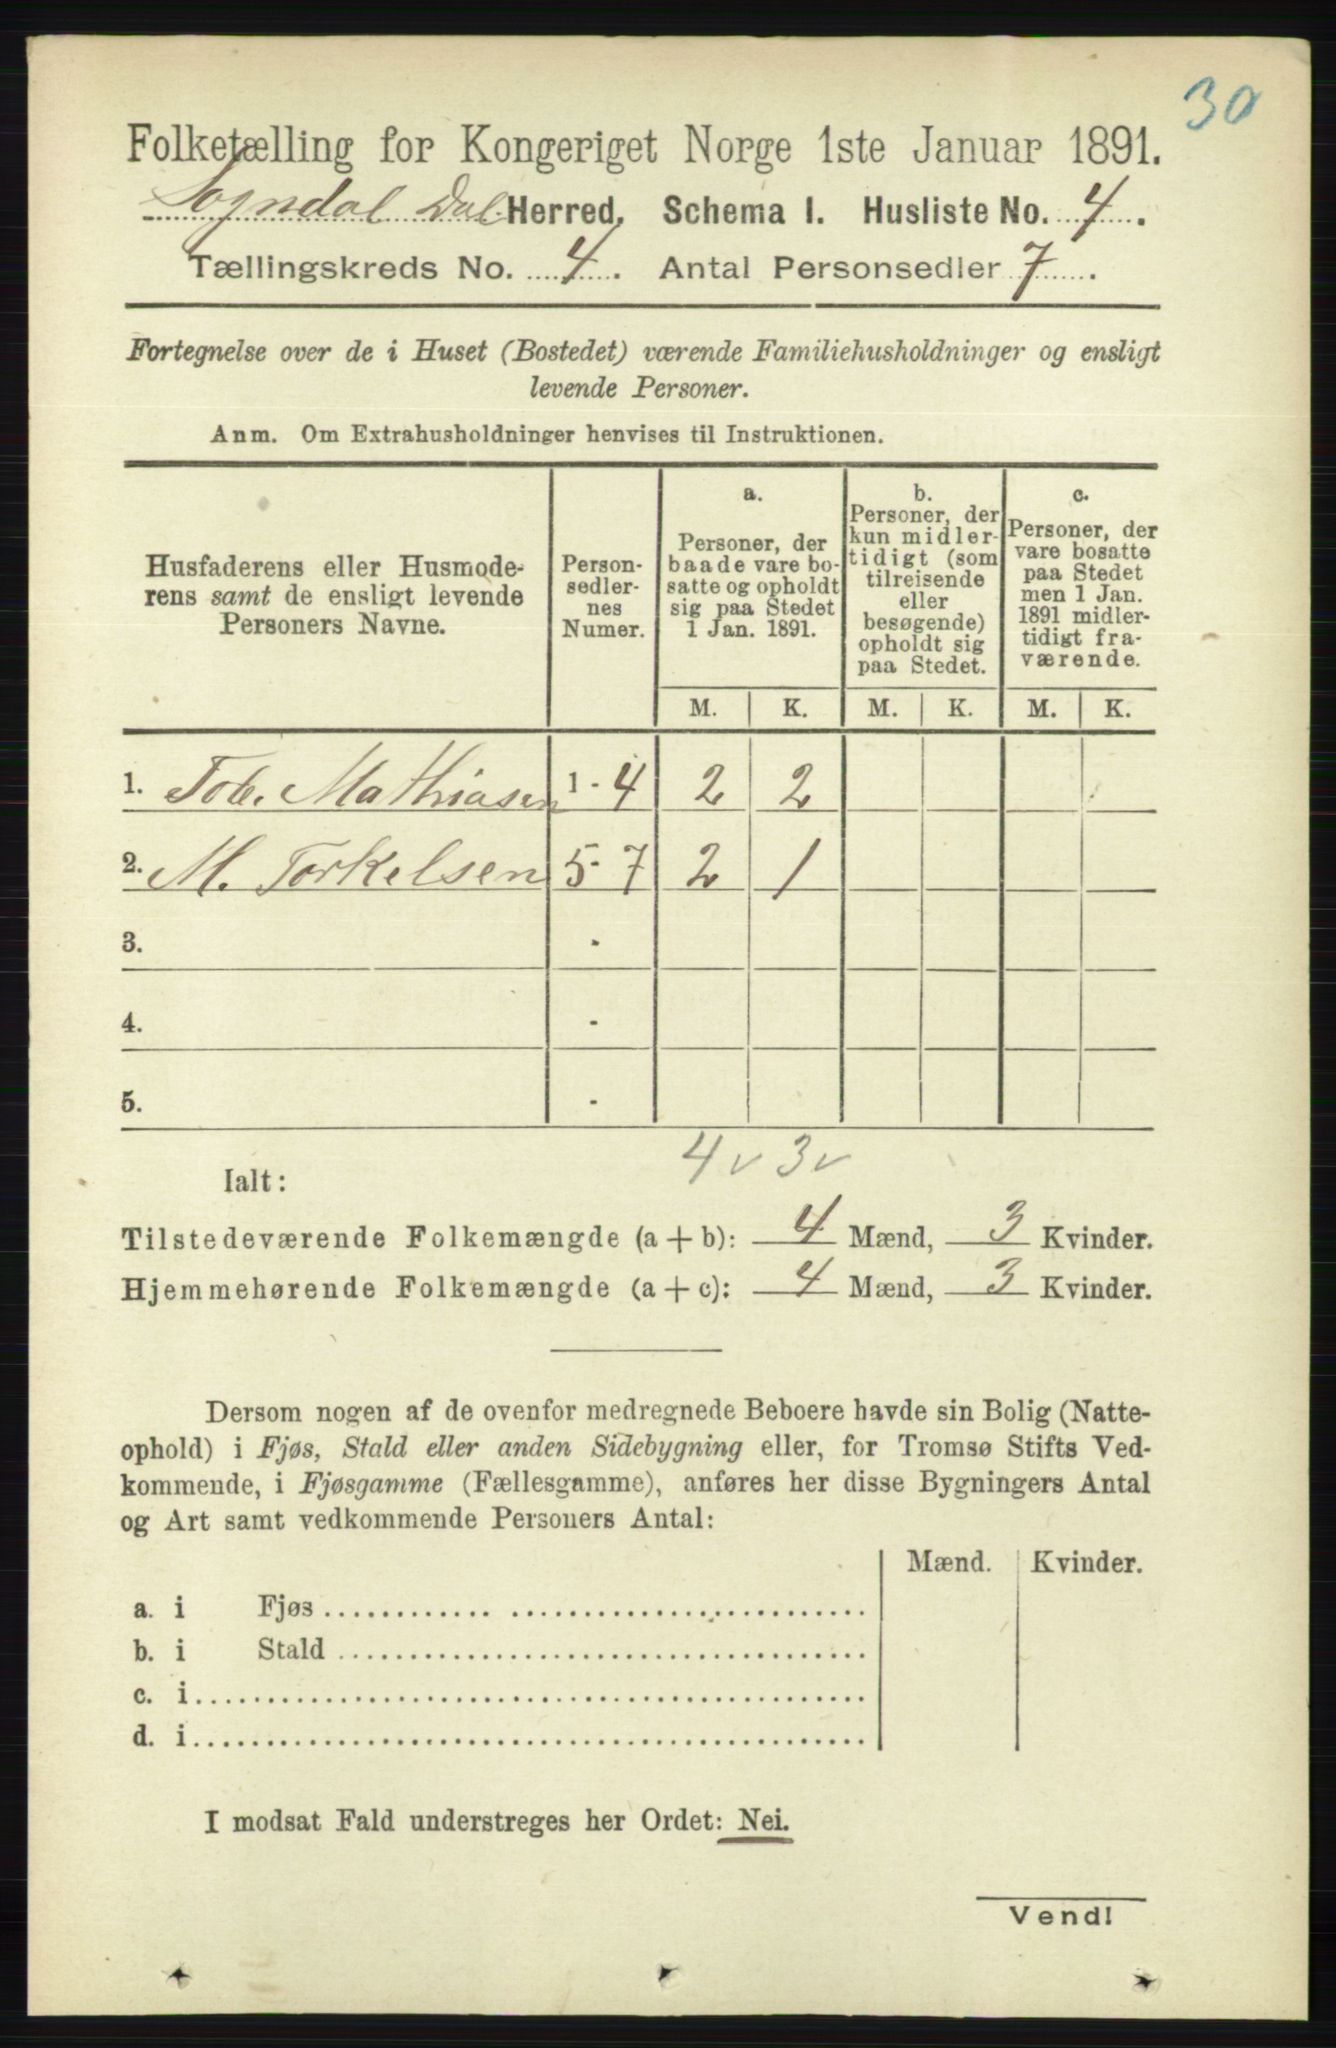 30
Folketælling for Kongeriget Norge 1ste Januar 1891.
Sogndal Dal. Herred. Schema I. Husliste No. 4.
Tællingskreds No. 4. Antal Personsedler 7.
Fortegnelse over de i Huset (Bostedet) værende Familiehusholdninger og ensligt
levende Personer.
Anm. Om Extrahusholdninger henvises til Instruktionen.
Husfaderens eller Husmode-
rens samt de ensligt levende
Personers Navne.
Person-
sedler-
nes
Numer.
a.
Personer, der
baade vare bo-
satte og opholdt
sig paa Stedet
1 Jan. 1891.
b.
Personer, der
kun midler-
tidigt (som
tilreisende
eller
besøgende)
opholdt sig
paa Stedet.
c.
Personer, der
vare bosatte
paa Stedet
men 1 Jan.
1891 midler-
tidigt fra-
værende.
M. K. M. K. M. K.
1. Tob. Mathiasen 1 - 4 2 2
2. M. Torkelsen 5 - 7 2 1
3. -
4. -
5. -
4 v 3 v
Ialt:
Tilstedeværende Folkemængde (a + b): 4 Mænd, 3 Kvinder.
Hjemmehørende Folkemængde (a + c): 4 Mænd, 3 Kvinder.
Dersom nogen af de ovenfor medregnede Beboere havde sin Bolig (Natte-
ophold) i Fjøs, Stald eller anden Sidebygning eller, for Tromsø Stifts Ved-
kommende, i Fjøsgamme (Fællesgamme), anføres her disse Bygningers Antal
og Art samt vedkommende Personers Antal:
Mænd. Kvinder.
a. i Fjøs
b. i Stald
c. i
d. i
I modsat Fald understreges her Ordet: Nei.
Vend!